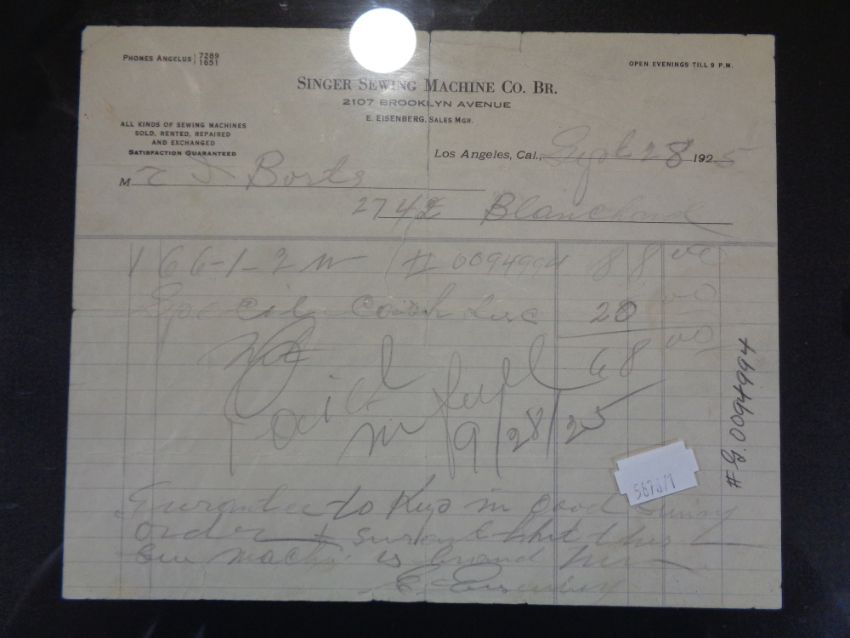 PHONES ANGELUS 7289
1651
OPEN EVENINGS TILL 9 P.M.
SINGER SEWING MACHINE CO. BR.
2107 BROOKLYN AVENUE
E. EISENBERG, SALES MGR.
ALL KINDS OF SEWING MACHINES
SOLD, RENTED, REPAIRED
AND EXCHANGED
SATISFACTION GUARANTEED
Los Angeles, Cal., Sept 28 1925
M Borts
2742 Blanchard
1 66-1-2 # G0094994 88 00
Special Cash 20 00
68 00
Paid in full
9/28/25
# G.0094994
567671
to Keep in good Sewing
order this
is brand New
E. Eisenberg